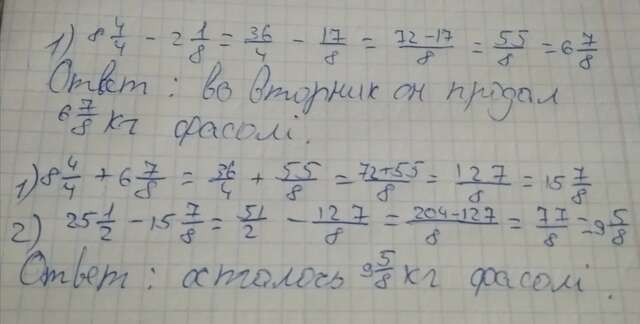 1) 8 4/4 - 2 1/8 = 36/4 - 17/8 = 72-17/8 = 55/8 = 6 7/8
Ответ : во вторник он продал
6 7/8 кг фасолі.
1) 8 4/4 + 6 7/8 = 36/4 + 55/8 = 72+55/8 = 127/8 = 15 7/8
2) 25 1/2 - 15 7/8 = 51/2 - 127/8 = 204-127/8 = 77/8 = 9 5/8
Ответ : осталось 9 5/8 кг фасолі.